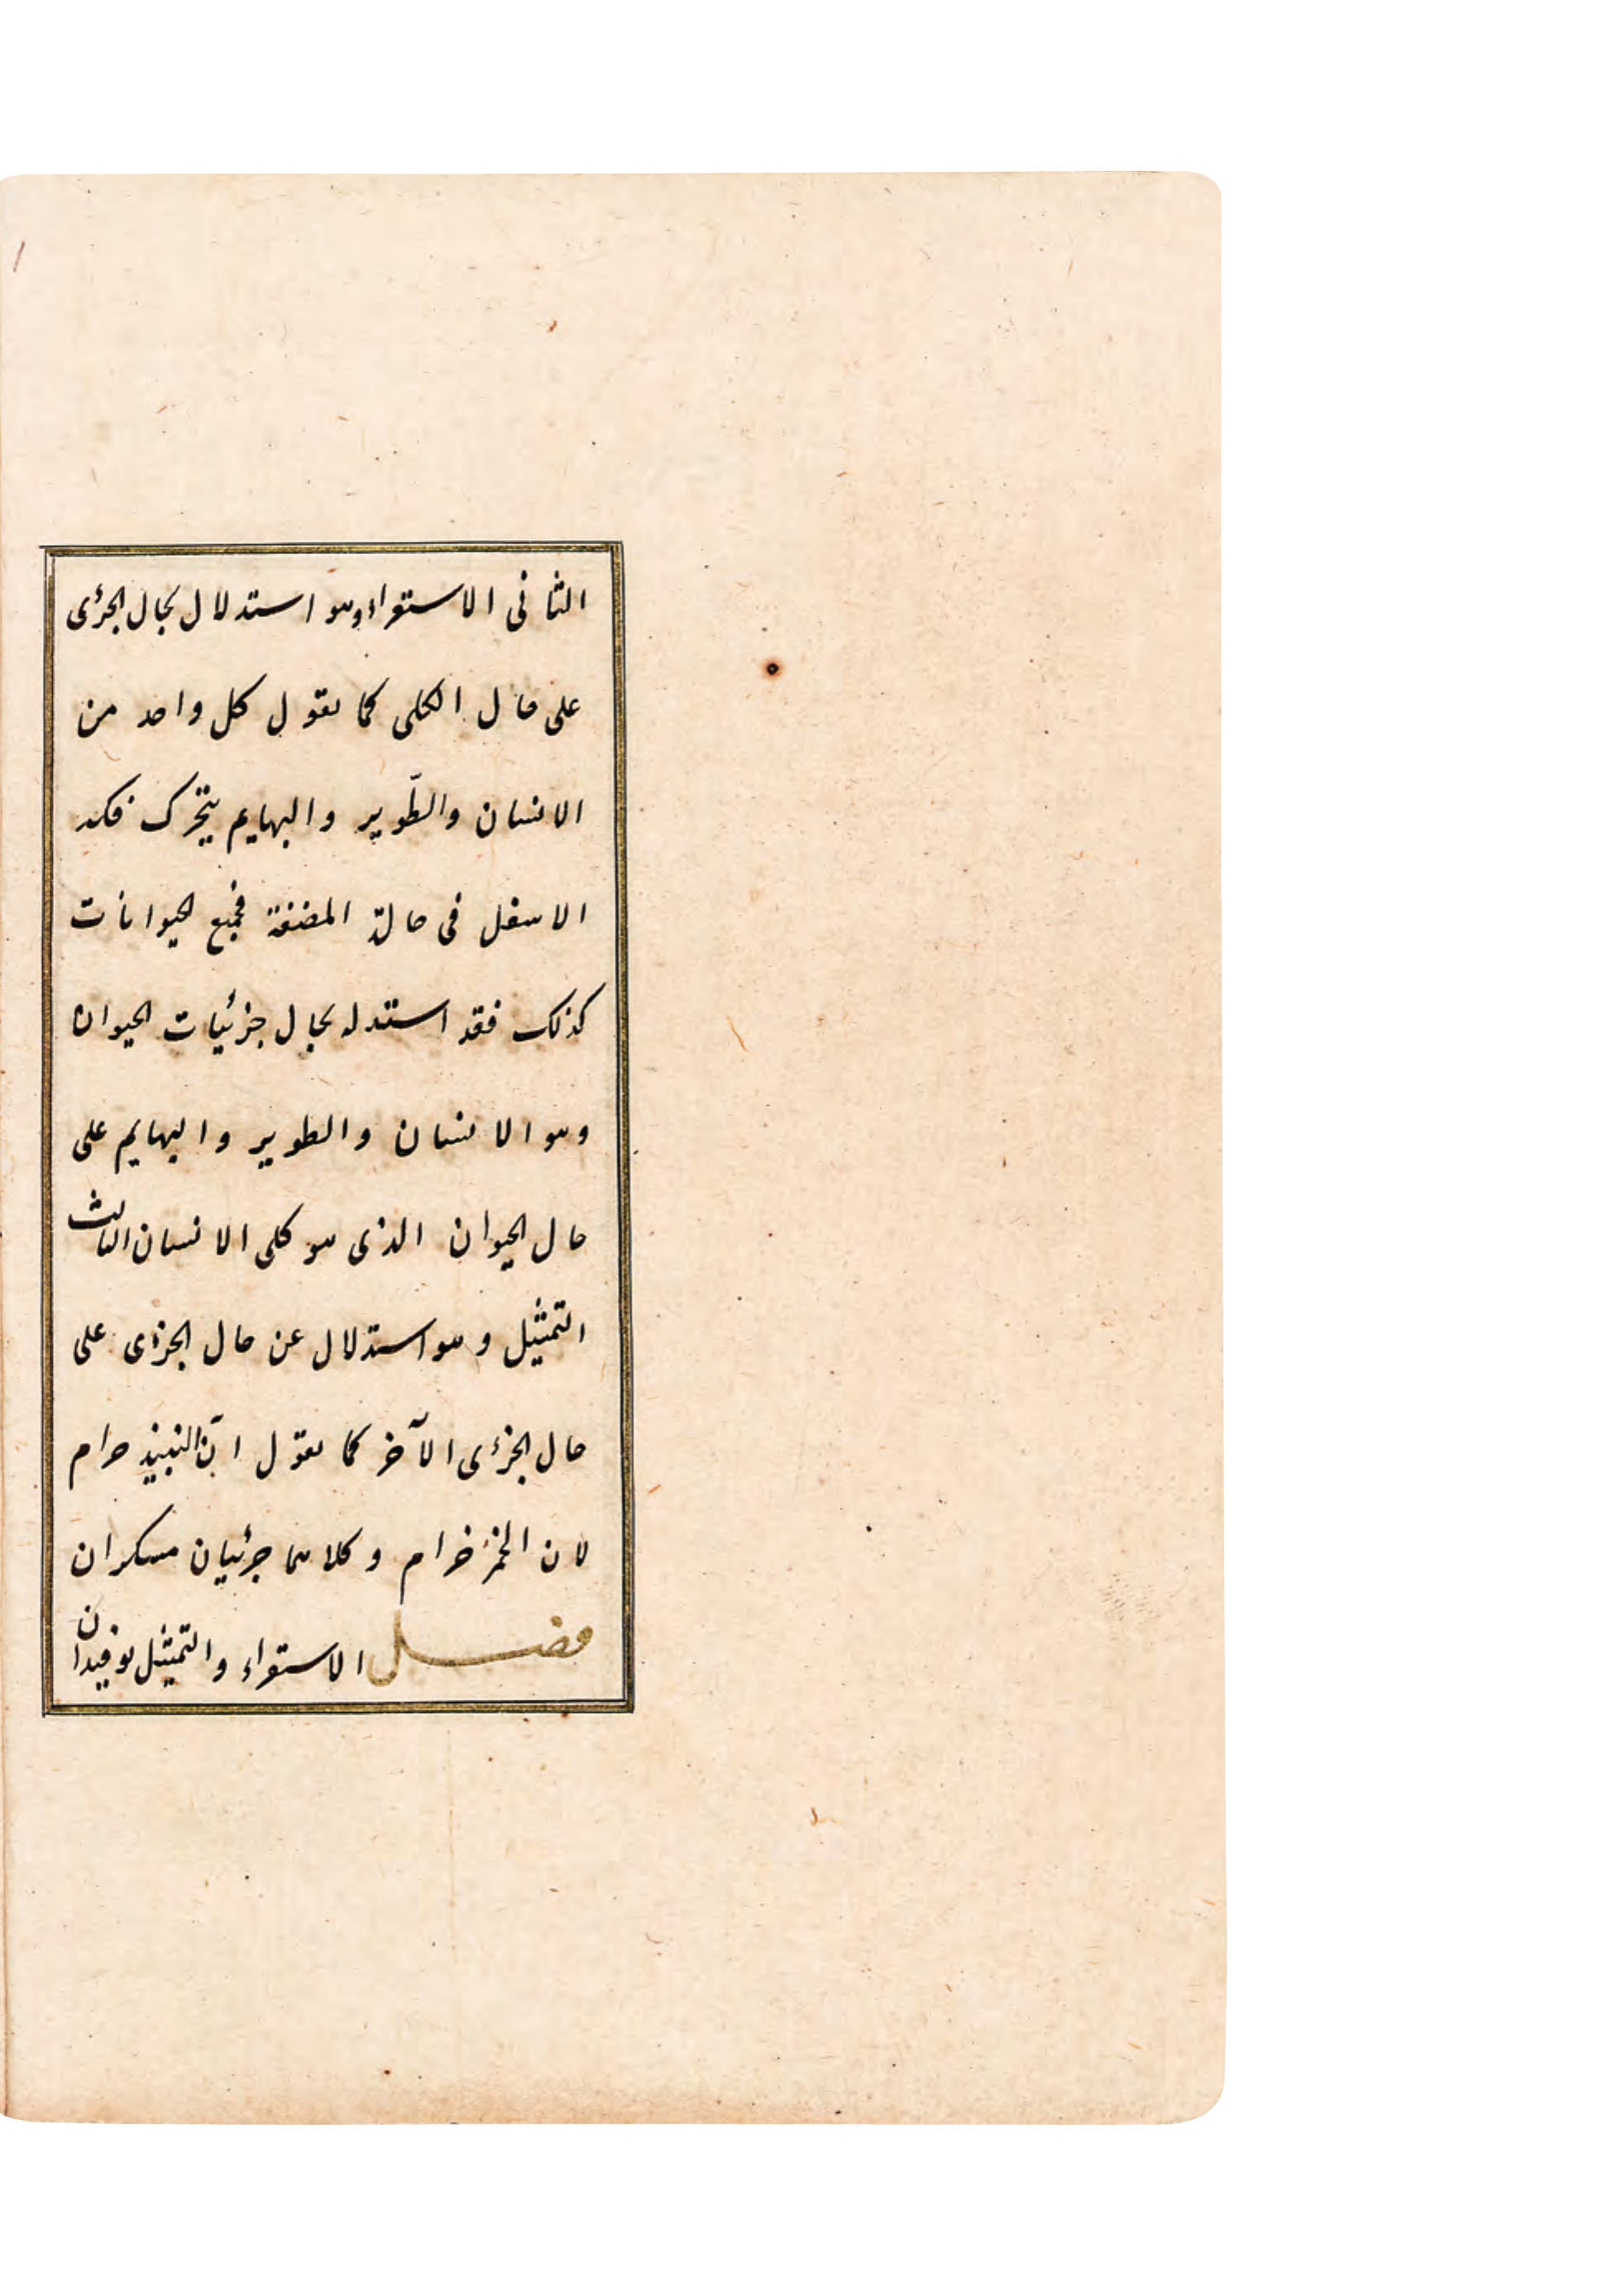 الثانى الاستقراء وهو استدلال بحال الجزئى
على حال الكلى كما نقول كل واحد من
الانسان والطّوير والبهايم يتحرك فكه
الاسفل فى حالة المضغة فجميع الحيوانات
كذلك فقد استدل بحال جزئيات الحيوان
وهو الانسان والطوير والبهايم على
حال الحيوان الذى هو كلى الانسان الثالث
التمثيل وهو استدلال عن حال الجزءى على
حال الجزءى الآخر كما نقول انّ النبيذ حرام
لان الخمر حرام وكلاهما جزئيان مسكران
فصل الاستقراء والتمثيل يوفيدان